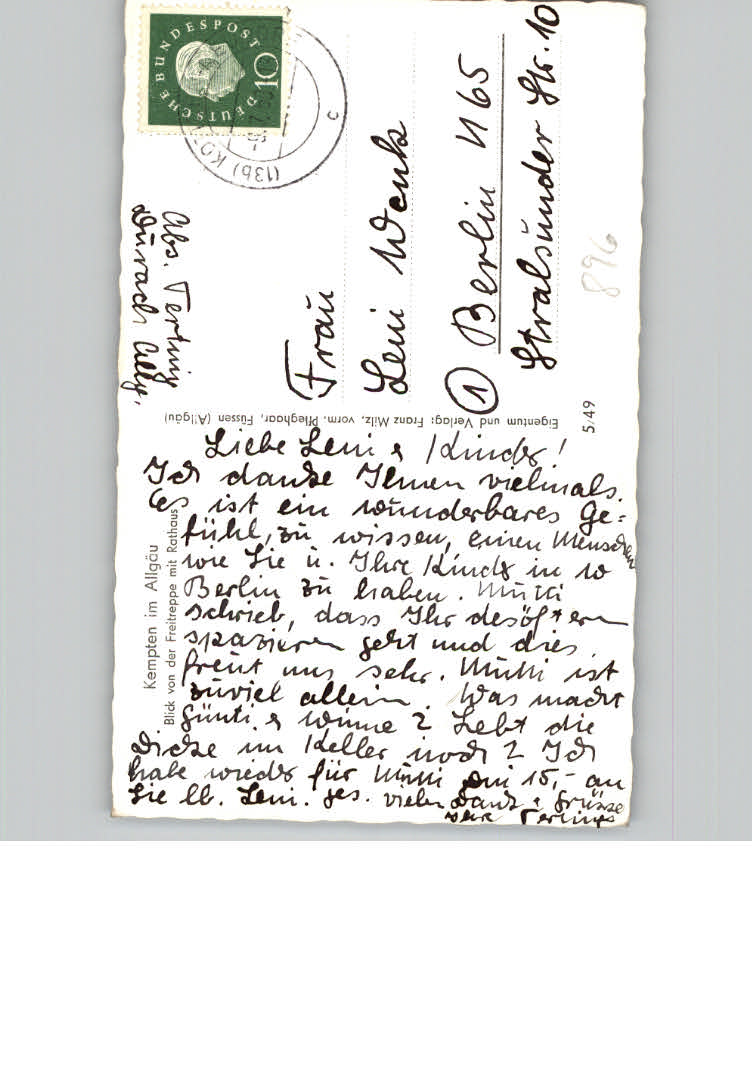 DEUTSCHE BUNDESPOST
10
(13b) KO
c
Abs. Terting
Durach Allg.
Frau
Leni Wenk
① Berlin N65
Stralsunder Str. 10
896
Eigentum und Verlag: Franz Milz, vorm. Pfleghaar, Füssen (Allgäu)
5/49
Kempten im Allgäu
Blick von der Freitreppe mit Rathaus
Liebe Leni & Kinder!
Ich danke Ihnen vielmals.
Es ist ein wunderbares Ge=
fühl, zu wissen, einen Menschen
wie Sie u. Ihre Kinder in
Berlin zu haben. Mutti
schrieb, dass Ihr desöftern
spazieren geht und dies
freut uns sehr. Mutti ist
zuviel allein. Was macht
Günti & Winne? Lebt die
Dicke im Keller noch? Ich
habe wieder für Mutti DM 15,- an
Sie lb. Leni. ges. vielen Dank & Grüsse
Tertings